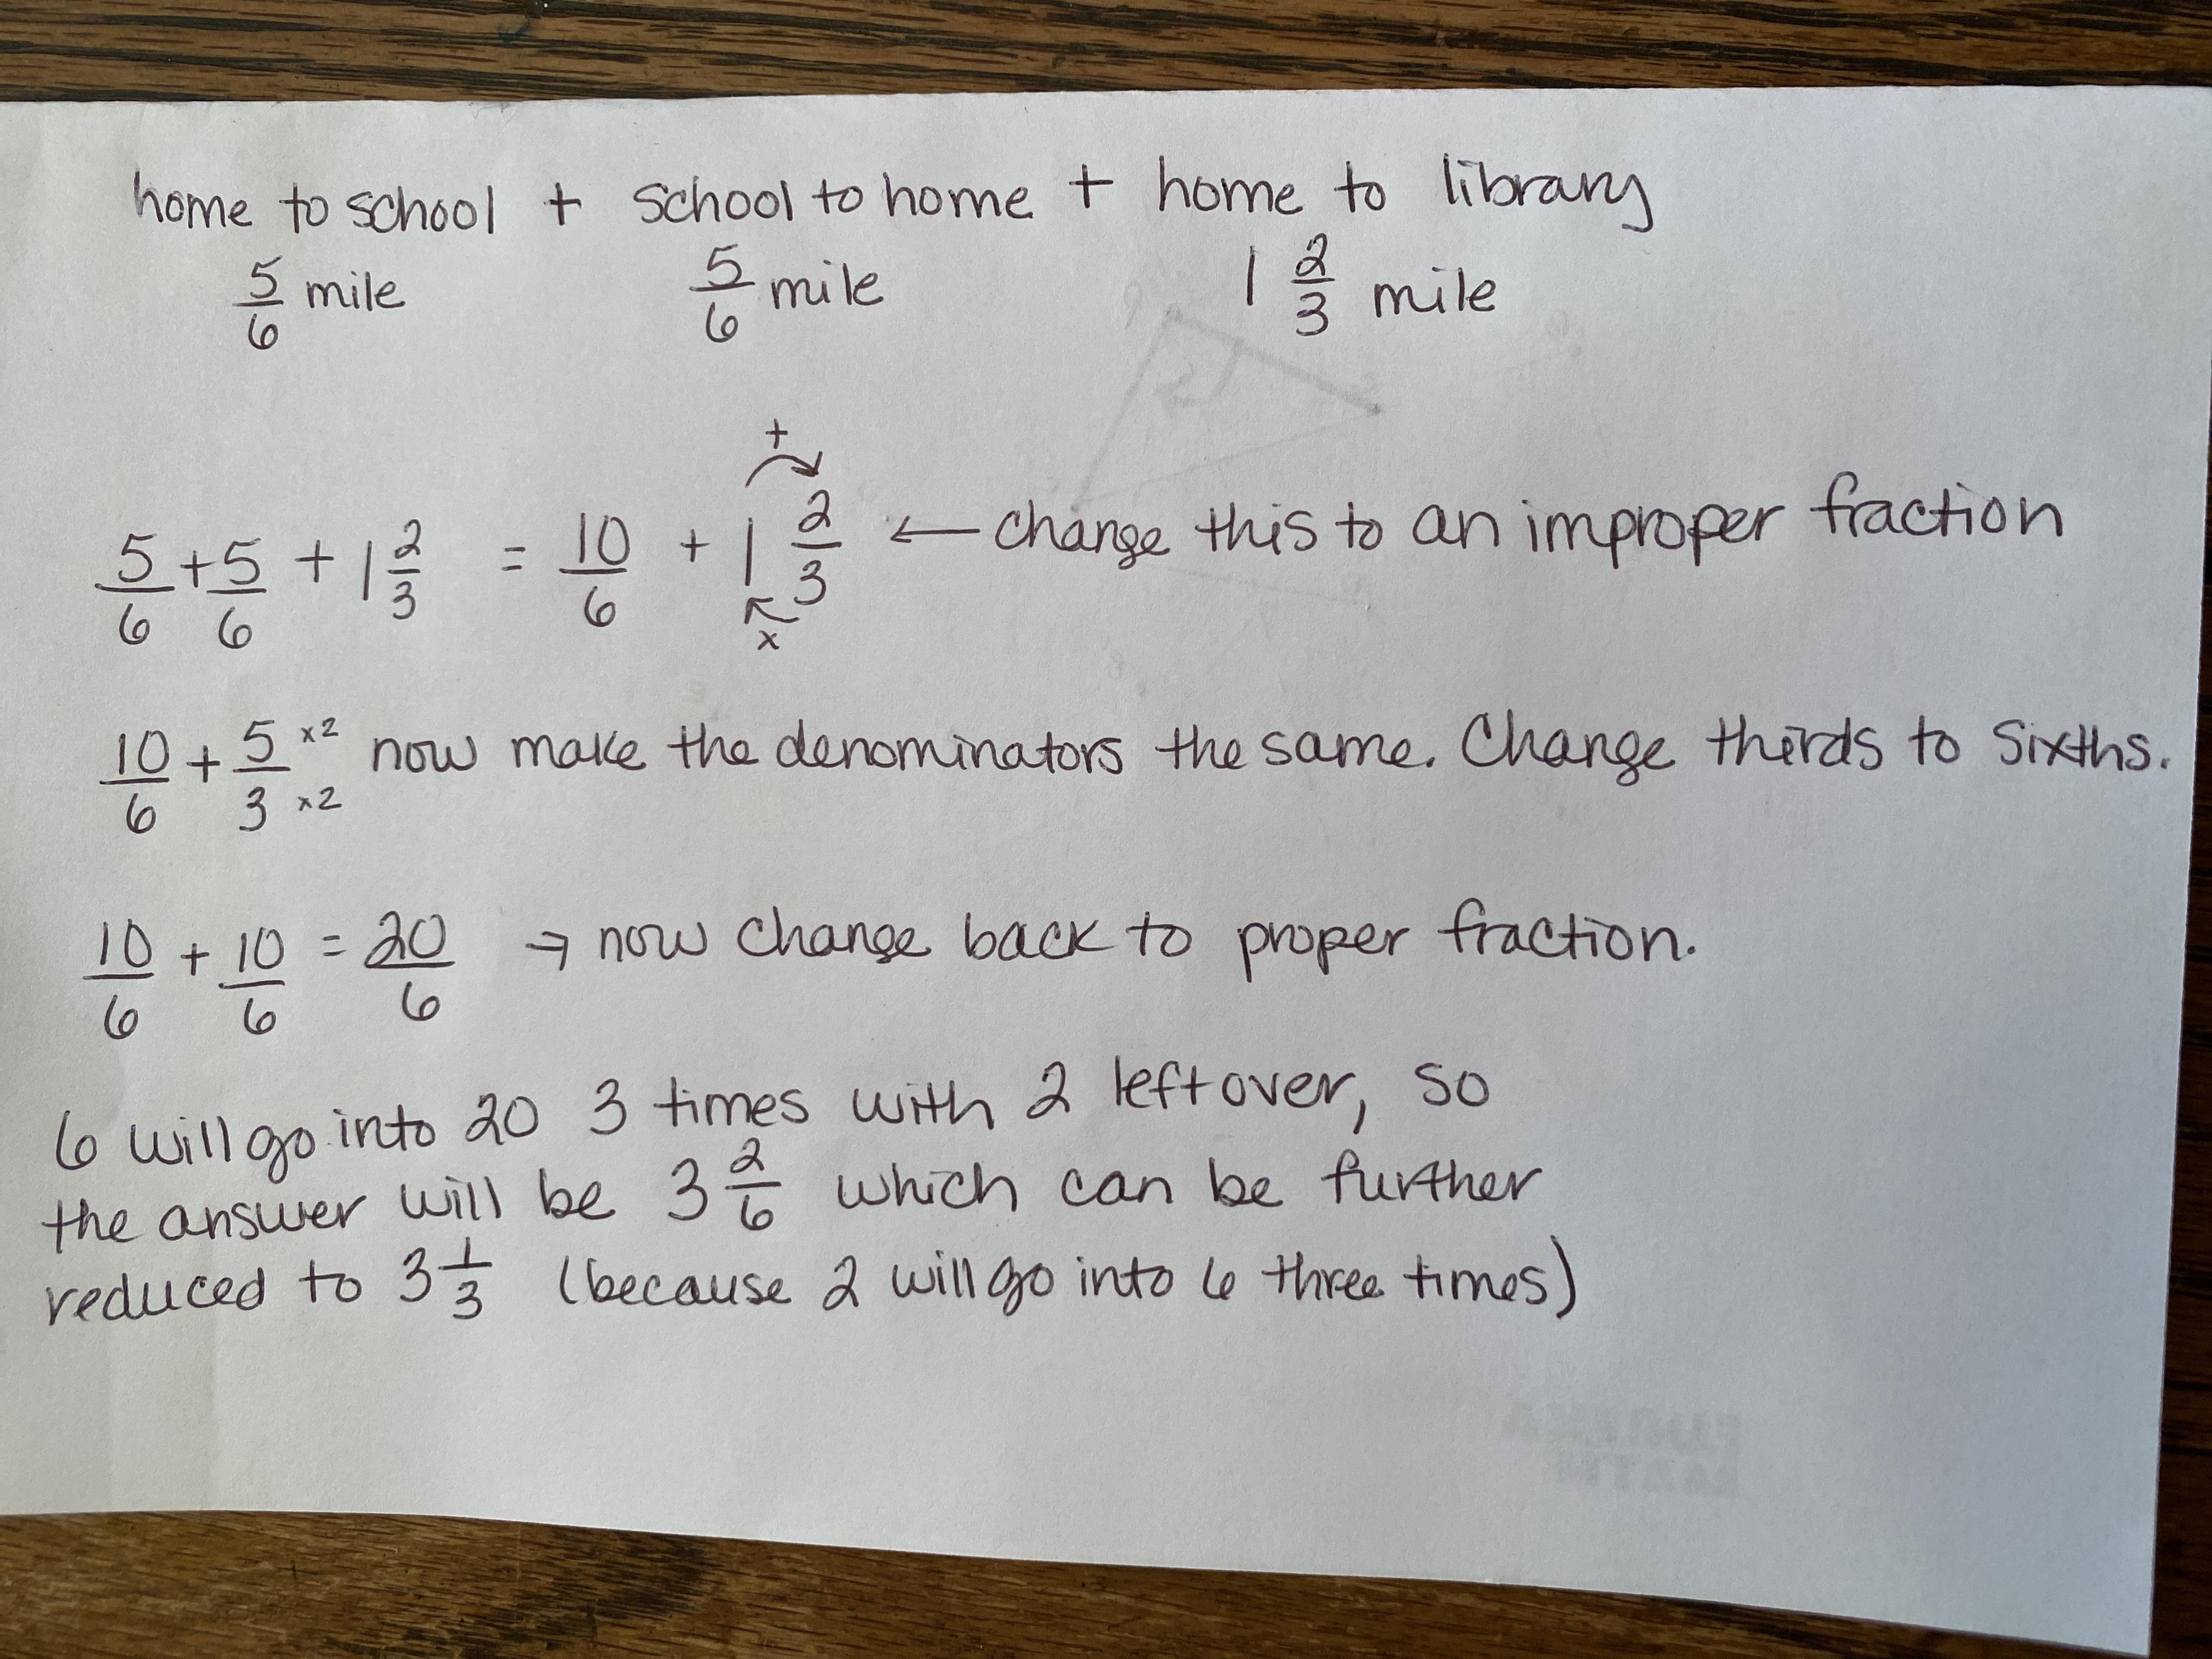 home to school + school to home + home to library
5/6 mile 5/6 mile 1 2/3 mile
+
5/6 + 5/6 + 1 2/3 = 10/6 + 1 2/3 ← change this to an improper fraction
x
10/6 + 5/3 x2 x2 now make the denominators the same. Change thirds to sixths.
10/6 + 10/6 = 20/6 → now change back to proper fraction.
6 will go into 20 3 times with 2 leftover, so
the answer will be 3 2/6 which can be further
reduced to 3 1/3 (because 2 will go into 6 three times)